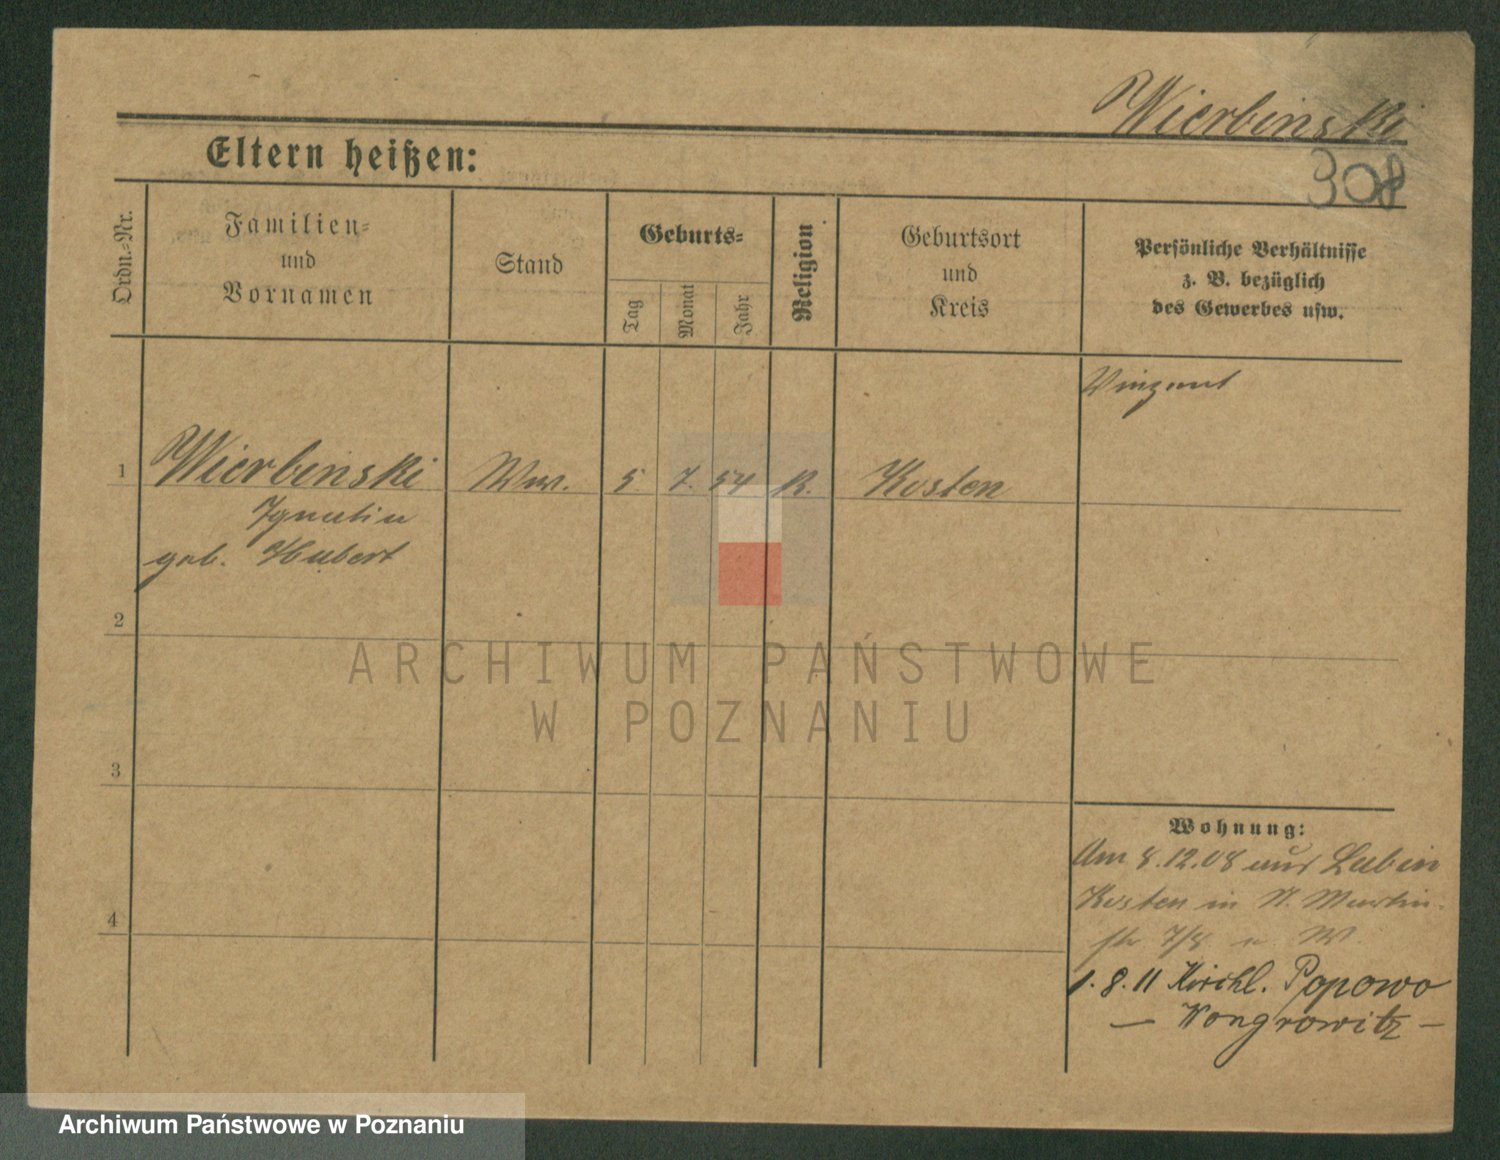 Wierbinski
308
Eltern heißen:
Ordn.=Nr.
Familien=
und
Vornamen
Stand
Geburts=
Tag
Monat
Jahr
Religion
Geburtsort
und
Kreis
Persönliche Verhältnisse
z. B. bezüglich
des Gewerbes usw.
1
Wierbinski Ww. 5. 7. 54 K. Kosten
geb. Hubert
2
3
4
Wohnung:
Am 8.12.08 aus Lubin
Kosten in St. Martin-
str 7/8
1.8.11 Kirchl. Popowo
— Wongrowitz —
ARCHIWUM PAŃSTWOWE
W POZNANIU
Archiwum Państwowe w Poznaniu